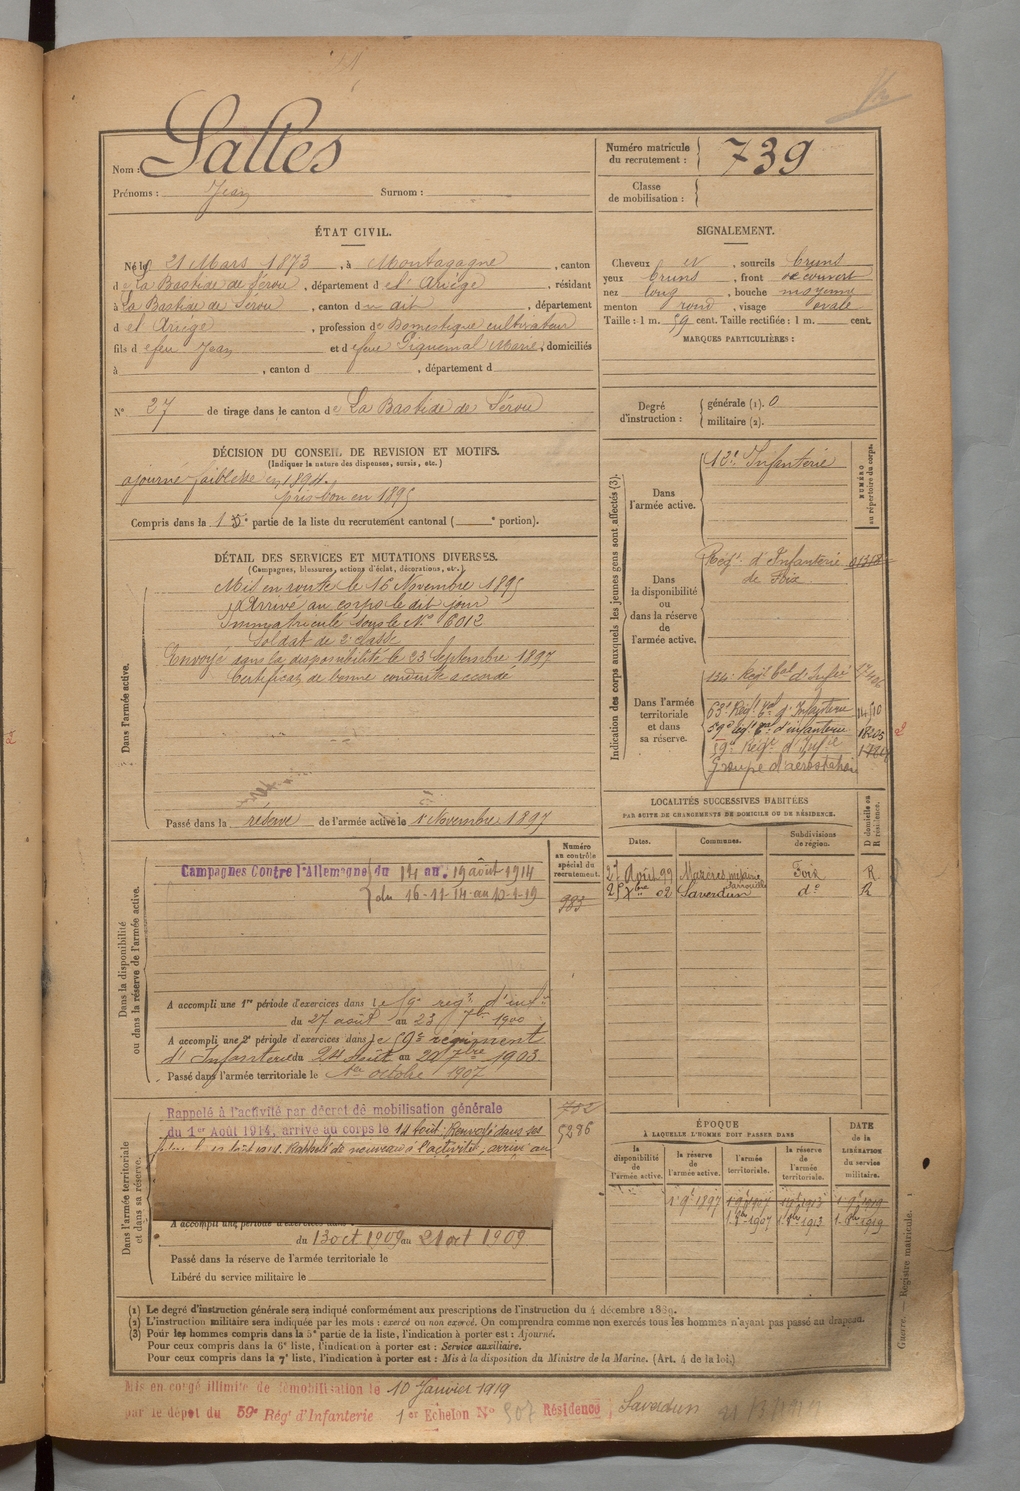 Nom : Salles
Prénoms : Jean Surnom :
Numéro matricule du recrutement : 739
Classe de mobilisation :
ÉTAT CIVIL.
Né le 21 Mars 1873, à Montagagne, canton
de La Bastide de Sérou, département de l'Ariège, résidant
à La Bastide de Sérou, canton du dit, département
d et Ariège, profession de Domestique cultivateur
fils d efeu Jean et d efeue Piquemal Marie, domiciliés
à , canton d , département d
N° 37 de tirage dans le canton de La Bastide de Sérou
SIGNALEMENT.
Cheveux et, sourcils bruns
yeux bruns, front découvert
nez long, bouche moyenne
menton rond, visage ovale
Taille : 1 m. 59 cent. Taille rectifiée : 1 m. cent.
MARQUES PARTICULIÈRES :
Degré d'instruction : générale (1). 0
militaire (2).
DÉCISION DU CONSEIL DE REVISION ET MOTIFS.
(Indiquer la nature des dispenses, sursis, etc.)
ajourné faiblesse en 1894.
pris bon en 1895
Compris dans la 1 5e partie de la liste du recrutement cantonal ( e portion).
DÉTAIL DES SERVICES ET MUTATIONS DIVERSES.
(Campagnes, blessures, actions d'éclat, décorations, etc.)
Dans l'armée active.
Mis en route le 16 Novembre 1895
Arrivé au corps le dit jour
Immatriculé sous le N° 6012
Soldat de 2e classe
Envoyé dans la disponibilité le 23 Septembre 1897
Certificat de bonne conduite accordé
Passé dans la réserve de l'armée active le 1 Novembre 1897
Indication des corps auxquels les jeunes gens sont affectés (3).
NUMÉRO au répertoire du corps.
Dans l'armée active. 12e Infanterie
Dans la disponibilité ou dans la réserve de l'armée active.
Régt d'Infanterie de Foix 01318
Dans l'armée territoriale et dans sa réserve.
134e Régt tal d'Infie
63e Régt tal d'Infanterie 14510
59e Régt tal d'infanterie 18205
59e Régt d'Infie
Groupe d'aérostation
LOCALITÉS SUCCESSIVES HABITÉES
PAR SUITE DE CHANGEMENTS DE DOMICILE OU DE RÉSIDENCE.
D domicile ou R résidence.
Dates. Communes. Subdivisions de région.
27 Août 99 Mazères métairie Foix R
25 Xbre 02 Saverdun do R
Dans la disponibilité ou dans la réserve de l'armée active.
Numéro au contrôle spécial du recrutement.
Campagnes Contre l'Allemagne du 14 au 19 août 1914
du 16-11-14 au 10-1-19
983
A accompli une 1re période d'exercices dans le 59e régt d'infie
du 27 août au 23 7bre 1900
A accompli une 2e période d'exercices dans le 59e régiment
d'Infanterie du 24 août au 20 7bre 1903
Passé dans l'armée territoriale le 1er octobre 1907
Dans l'armée territoriale et dans sa réserve.
Rappelé à l'activité par décret de mobilisation générale
du 1er Août 1914, arrivé au corps le 14 août. Renvoyé dans ses
Rappelé de nouveau à l'activité, arrivé au
702
5296
A accompli une période d'exercices dans
du 13 oct 1909 au 21 oct 1909
Passé dans la réserve de l'armée territoriale le
Libéré du service militaire le
ÉPOQUE
À LAQUELLE L'HOMME DOIT PASSER DANS
DATE de la LIBÉRATION du service militaire.
la disponibilité de l'armée active. la réserve de l'armée active. l'armée territoriale. la réserve de l'armée territoriale.
1 9e 1897 1 9e 1907 1 9e 1913 1 9e 1919
1. 8bre 1907 1. 8bre 1913 1. 8bre 1919
(1) Le degré d'instruction générale sera indiqué conformément aux prescriptions de l'instruction du 4 décembre 1889.
(2) L'instruction militaire sera indiquée par les mots : exercé ou non exercé. On comprendra comme non exercés tous les hommes n'ayant pas passé au drapeau.
(3) Pour les hommes compris dans la 5e partie de la liste, l'indication à porter est : Ajourné.
Pour ceux compris dans la 6e liste, l'indication à porter est : Service auxiliaire.
Pour ceux compris dans la 7e liste, l'indication à porter est : Mis à la disposition du Ministre de la Marine. (Art. 4 de la loi.)
Guerre. — Registre matricule.
Mis en congé illimité de démobilisation le 10 Janvier 1919
par le dépôt du 59e Rég' d'Infanterie 1er Echelon N° 507 Résidence : Saverdun